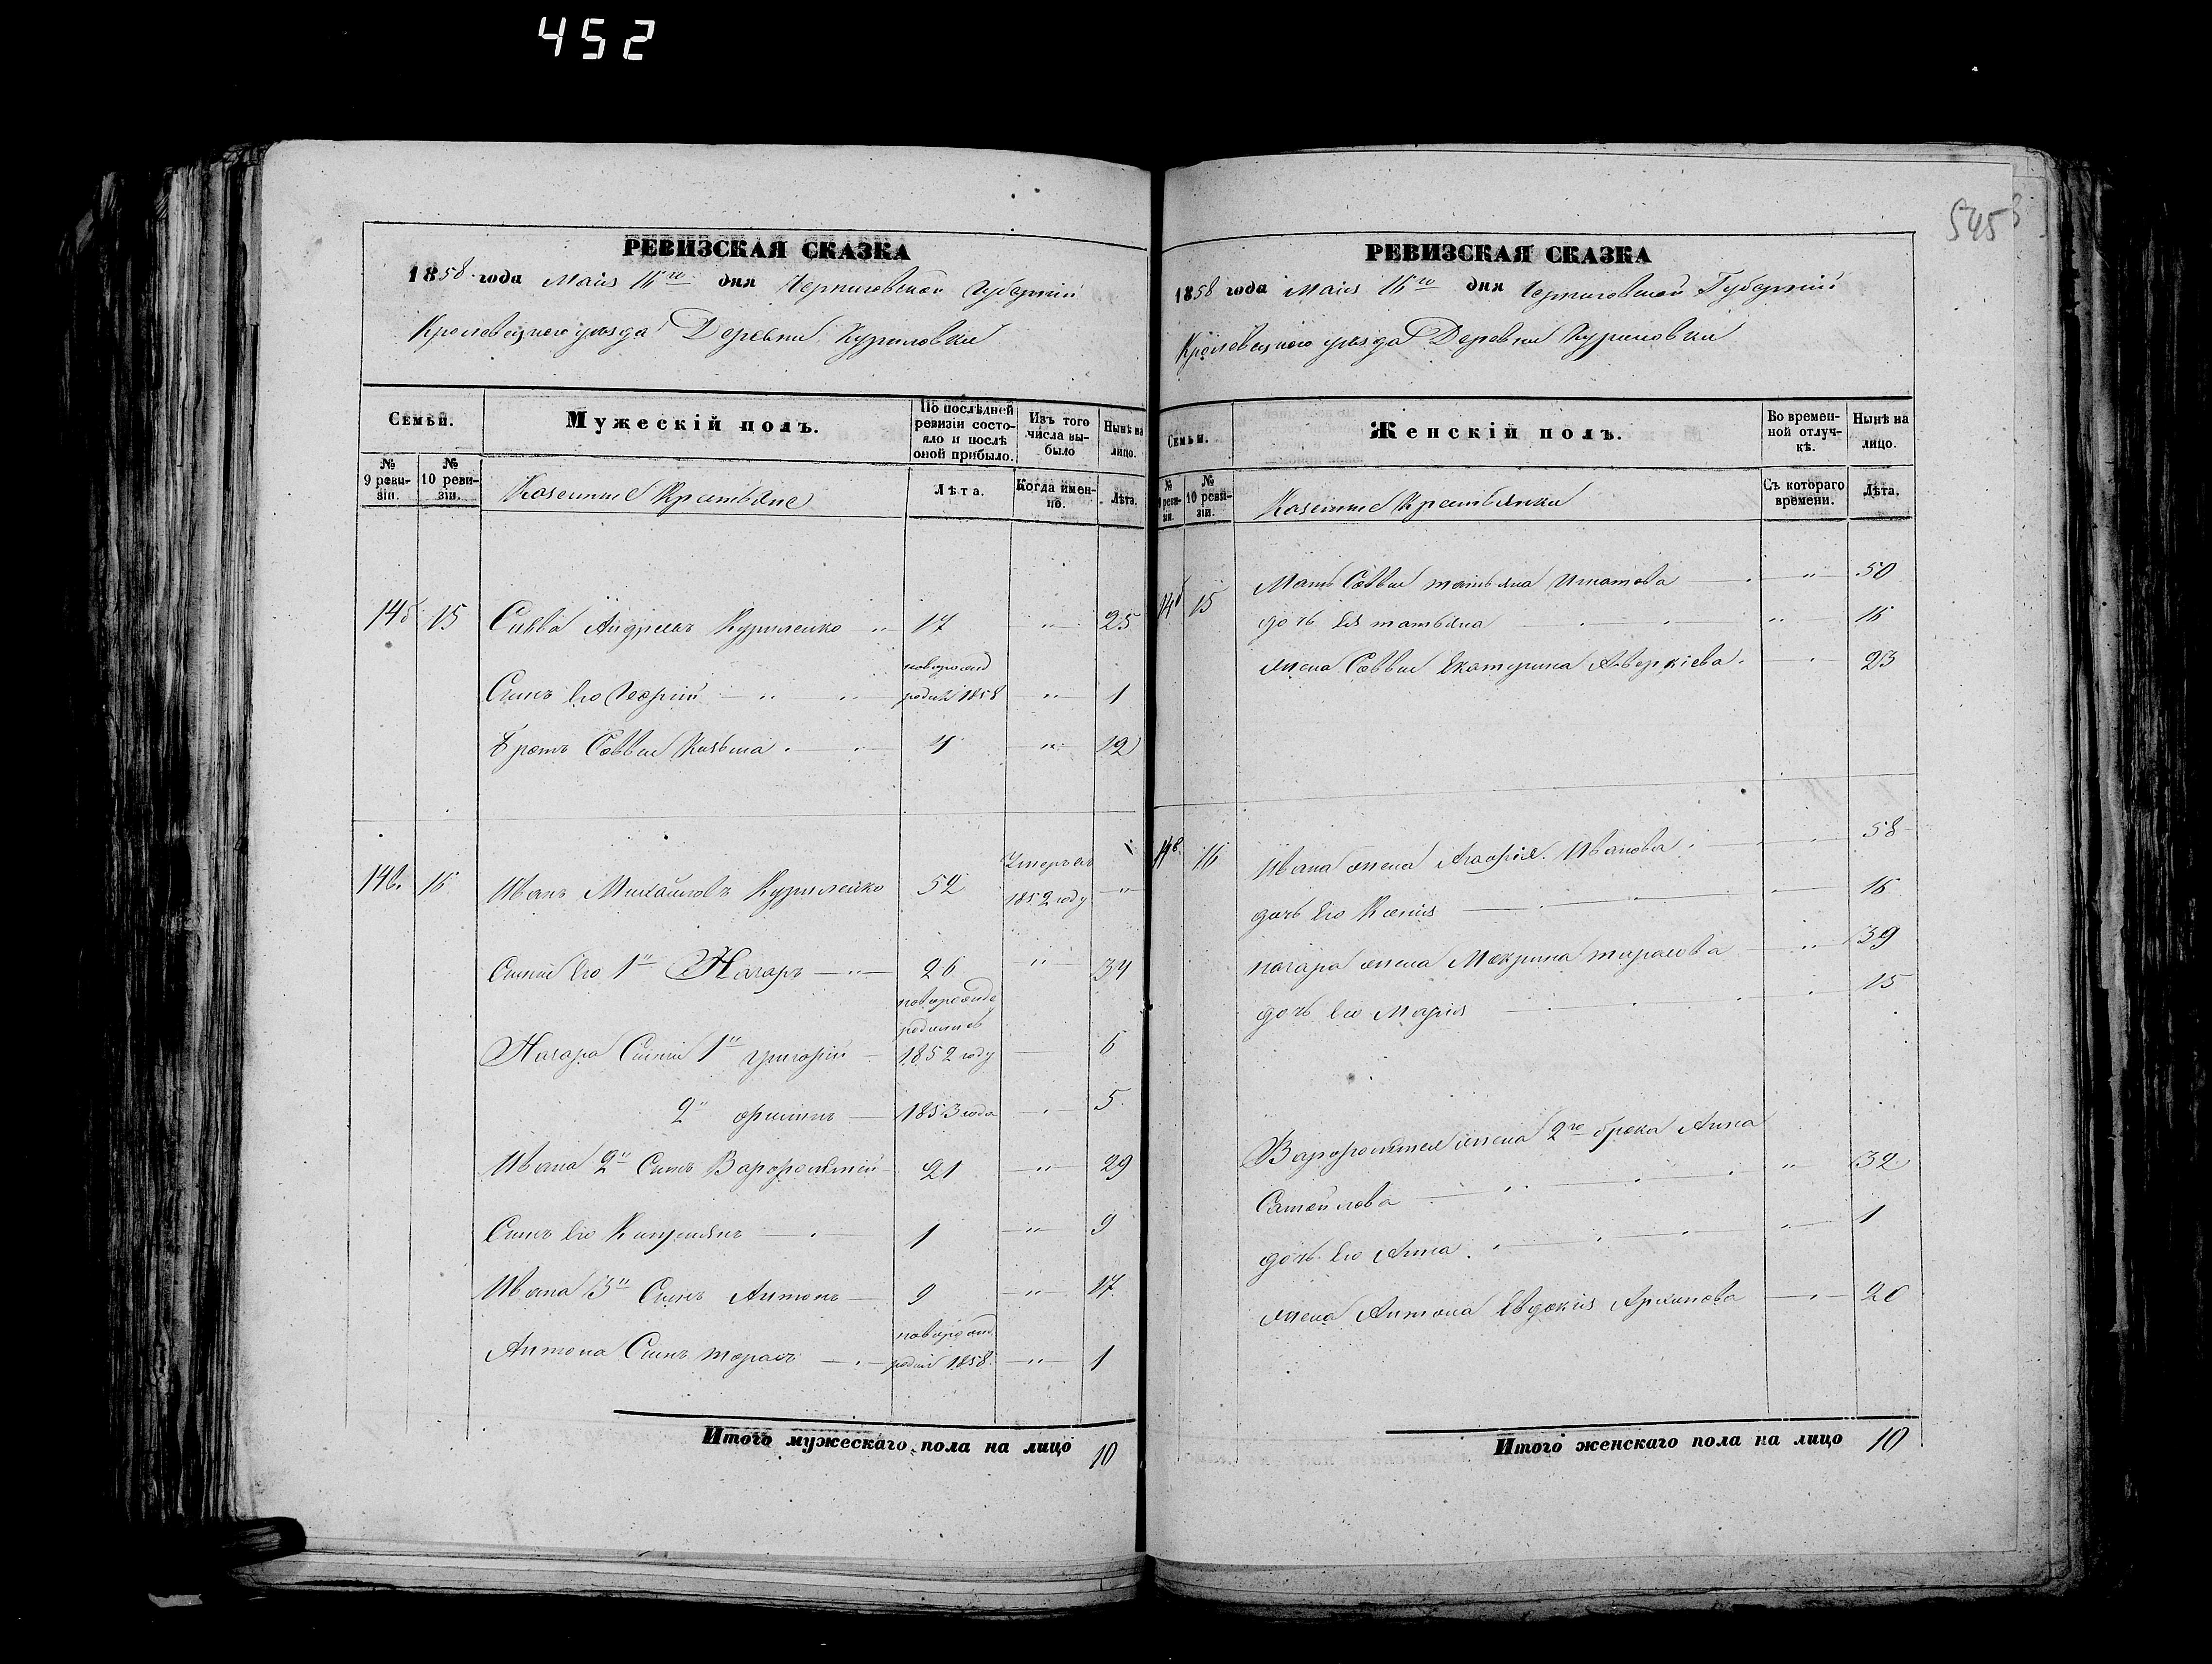 452
5453
РЕВИЗСКАЯ СКАЗКА
1858 года Маія 15го дня Черниговской Губерніи
Кролевецкого уезда Деревни Куриловки
Семьи.
Мужескій полъ.
По послѣдней ревизіи состояло и послѣ оной прибыло.
Изъ того числа выбыло
Нынѣ на лицо.
№ 9 ревизіи.
№ 10 ревизіи.
Казенные Крестьяне
Лѣта.
Когда именно.
Лѣта.
14б 15 Савва Андреевъ Куриленко " 17 " 25
новорожд
Сынъ Его Георгій " " родил 1858 " 1
Братъ Саввы Козьма 4 " 12
Умеръ въ
14в. 16 Иванъ Михайловъ Куриленко 52 1852 году "
Сыны Его 1й Назаръ " 26 " 34
новорожде
родился
Назара Сыны 1й Григорій 1852 году 6
2й 1853 года 5
Ивана 2й Сынъ Варфоломей 21 " 29
Сынъ Его 1 " 9
Ивана 3й Сынъ Антонъ 9 " 17
новорожд
Антона Сынъ Тарасъ родил 1858. " 1
Итого мужескаго пола на лицо 10
РЕВИЗСКАЯ СКАЗКА
1858 года Маія 15го дня Черниговской Губерніи
Кролевецкого уезда Деревни Куриловки
Семьи.
Женскій полъ.
Во временной отлучкѣ.
Нынѣ на лицо.
№ 9 ревизіи.
№ 10 ревизіи.
Казенные Крестьянки
Съ котораго времени.
Лѣта.
14б 15 Мать Саввы татьяна Игнатова " 50
дочь Ея татьяна " 16
жена Саввы Екатерина Аверкіева. 23
14в. 16 Ивана жена Агафія Иванова 58
дочь Его Ксенія 16
назара жена Макрина тарасова " 39
дочь Его Марія 15
Варфоломея жена 2го брака Анна
Самойлова " 32
дочь Его Анна 1
жена Антона Евдокія Архипова 20
Итого женскаго пола на лицо 10